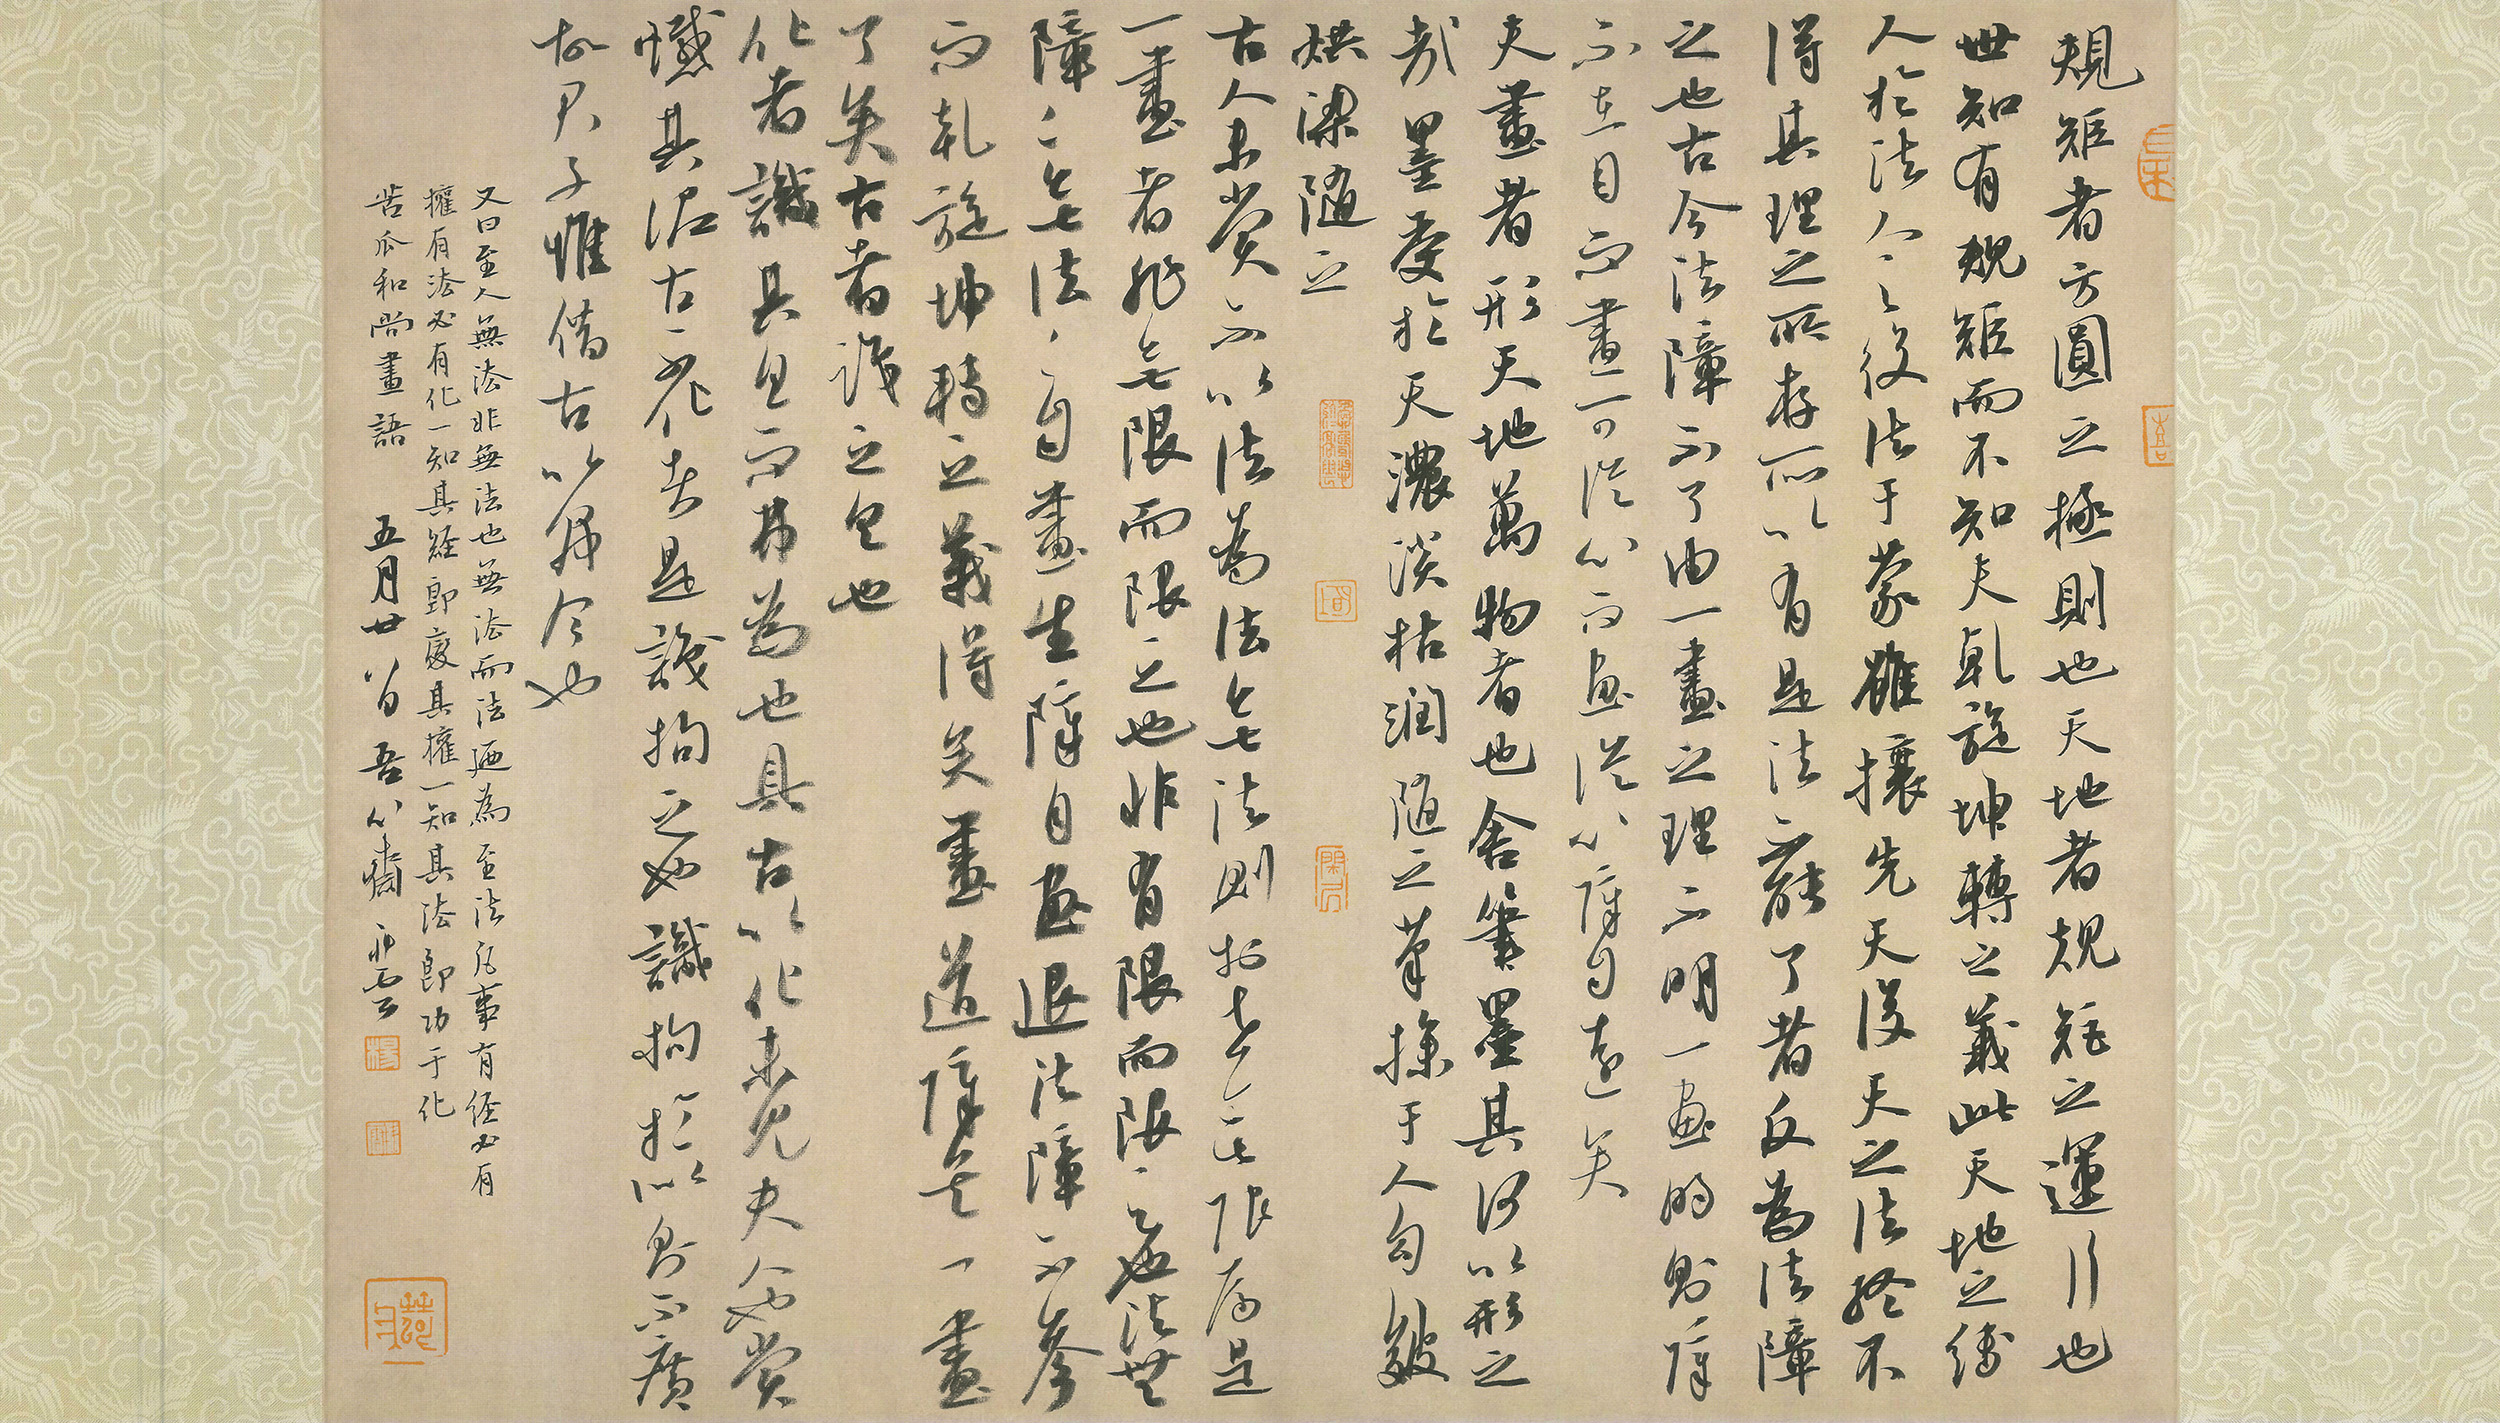 規矩者方圓之極則也天地者規矩之運行也
世知有規矩而不知夫乾旋坤轉之義此天地之縛
人於法人之役法于蒙雖攘先天後天之法終不
得其理之所存所以有是法不能了者反為法障
之也古今法障不了由一畫之理不明一畫明則障
不在目而畫可從心畫從心而障自遠矣
夫畫者形天地萬物者也舍筆墨其何以形之
哉墨受於天濃淡枯潤隨之筆操于人勾皴
烘染隨之
古人未嘗不以法為法無法則於世無限焉是
一畫者非無限而限之也非有限而限之也法無
障々無法々自畫生障自畫退法障不參
而乾旋坤轉之義得矣畫道障矣一畫
了矣古者識之具也
化者識具具而弗為也具古以化未見夫人也嘗
憾其泥古不化者是識拘之也識拘於似則不廣
故君子惟借古以開今也
又曰至人無法非無法也無法而法廼為至法凡事有經必有
擁有法必有化一知其經即变其擁一知其法即功于化
苦瓜和尚畫語 五月廿八日 吾心齋